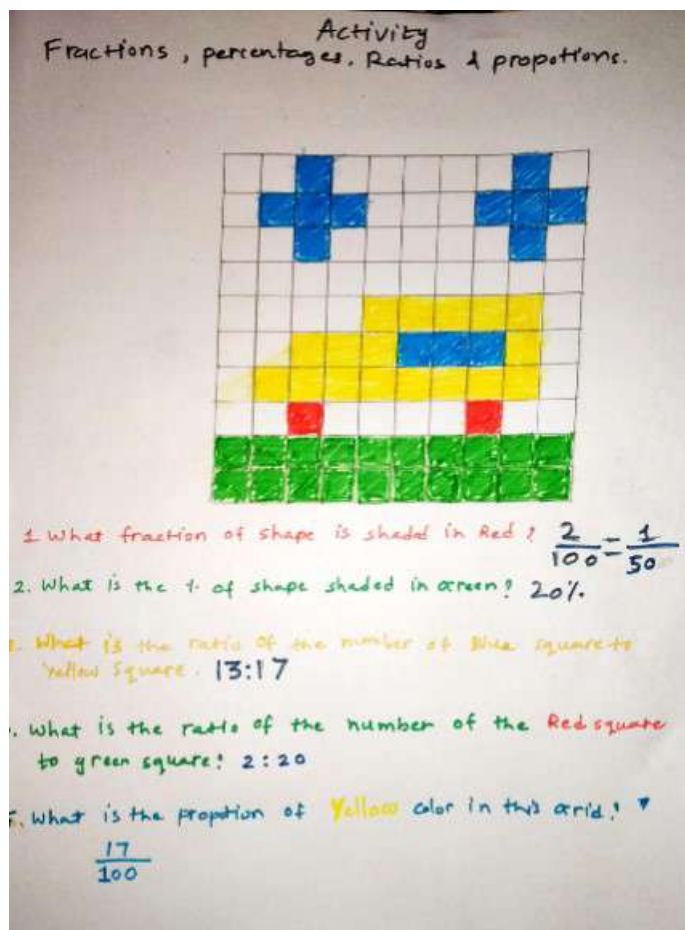 Activity
Fractions, percentages, Ratios & propotions.
1 What fraction of shape is shaded in Red? 2/100 = 1/50
2. What is the % of shape shaded in Green? 20%
. What is the ratio of the number of Blue square to
Yellow Square. 13:17
. What is the ratio of the number of the Red square
to green square? 2:20
. What is the propotion of Yellow color in this Grid?
17/100